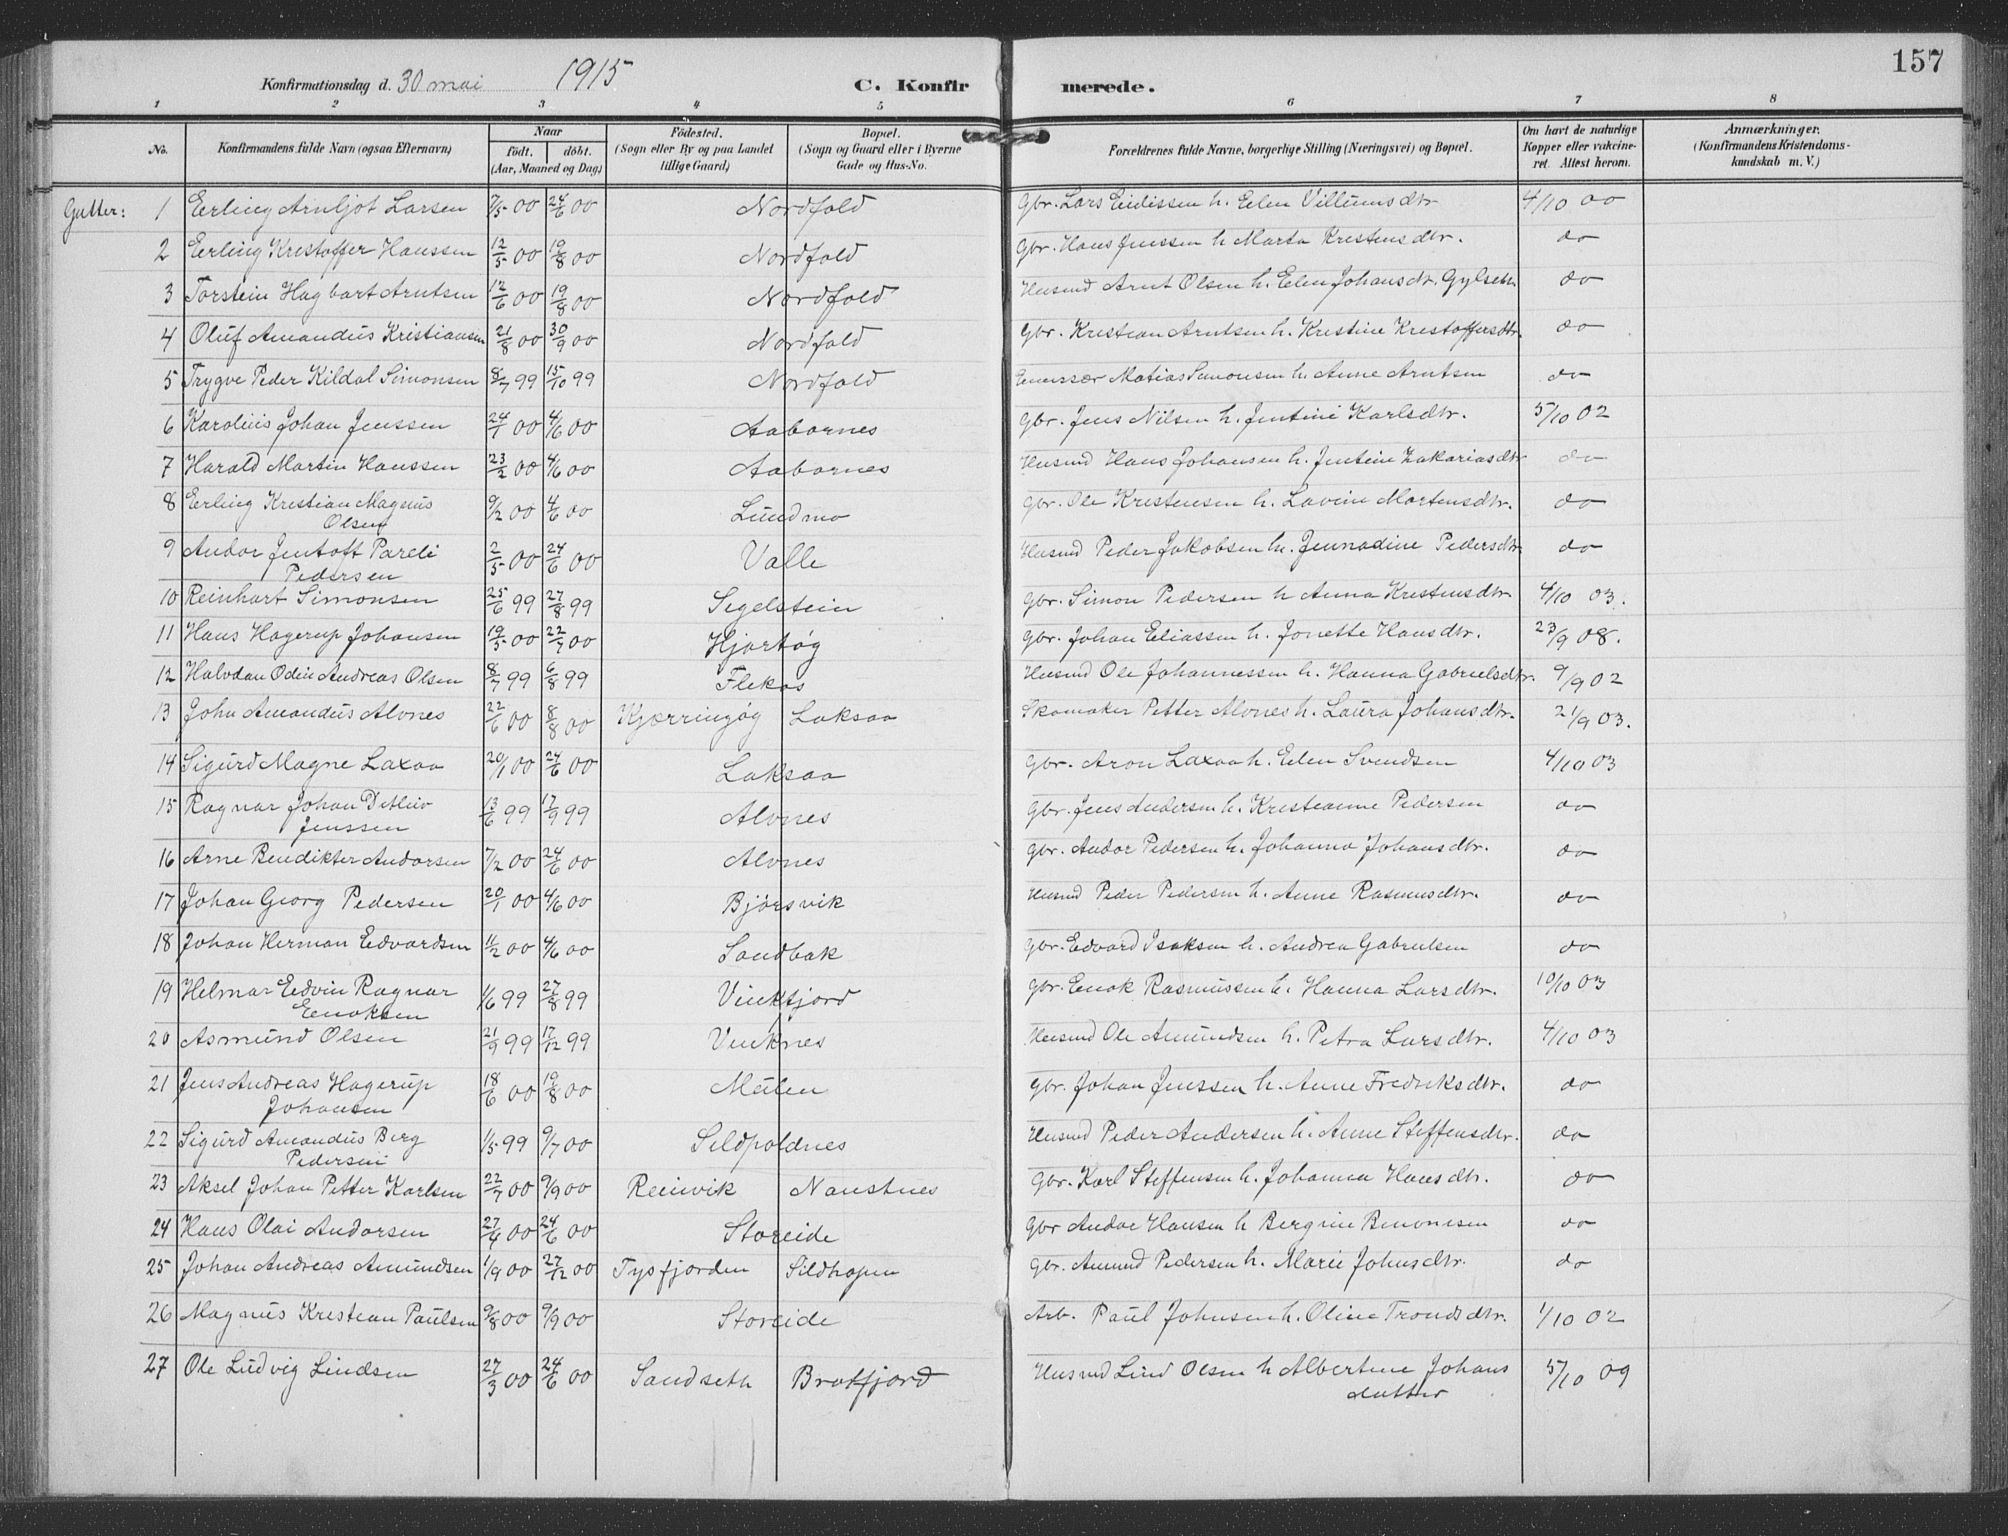 157
Konfirmationsdag d. 30 mai 1915 C. Konfirmerede.
1 2 3 4 5 6 7 8
No. Konfirmandens fulde Navn (ogsaa Efternavn) Naar födt. döbt. (Aar, Maaned og Dag) Födested. (Sogn eller By og paa Landet tillige Gaard) Bopæl. (Sogn og Gaard eller i Byerne Gade og Hus-No. Forældrenes fulde Navne, borgerlige Stilling (Næringsvei) og Bopæl. Om havt de naturlige Kopper eller vakcineret. Attest herom. Anmærkninger. (Konfirmandens Kristendomskundskab m. V.)
Gutter: 1 Erling Arnljot Larsen 7/5 00 24/6 00 Nordfold Gbr. Lars Eidissen h. Elen Villumsdtr 4/10 00
2 Erling Kristoffer Hanssen 12/5 00 19/8 00 Nordfold Gbr. Hans Jenssen h. Marta Kristensdtr. do
3 Torstein Hagbart Arntsen 12/6 00 19/8 00 Nordfold Husmd Arnt Olsen h. Elen Johansdtr. Gylseth do
4 Oluf Amandus Kristiansen 21/8 00 30/9 00 Nordfold Gbr. Kristian Arntsen h. Kristine Kristoffersdtr. do
5 Trygve Peder Kildal Simonsen 8/7 99 15/10 99 Nordfold Matias Simonsen h. Anne Arntsen do
6 Karolius Johan Jenssen 24/1 00 4/6 00 Aabornes Gbr. Jens Nilsen h. Jentine Karlsdtr. 5/10 02
7 Harald Martin Hanssen 23/2 00 4/6 00 Aabornes Husmd Hans Johansen h. Jentine Zakariasdtr do
8 Erling Kristian Magnus 9/2 00 4/6 00 Lundmo Gbr. Ole Kristensen h. Lavine Mortensdtr. do
Olsen
9 Andor Jentoft Pareli 2/5 00 24/6 00 Valle Husmd Peder Jakobsen h. Jennadine Pedersdtr do
Pedersen
10 Reinhart Simonsen 25/6 99 27/8 99 Segelstein Gbr. Simon Pedersen h Anna Kristensdtr 4/10 03.
11 Hans Hagerup Johansen 19/5 00 22/7 00 Hjartøg Gbr. Johan Eliassen h. Jonette Hansdtr. 23/9 08.
12 Halvdan Odin Andreas Olsen 8/7 99 6/8 99 Flekas Husmd Ole Johannessen h. Hanna Gabrielsdtr. 9/9 02
13 John Amandus Alvnes 22/6 00 8/8 00 Kjærringøg Laksaa Skomaker Petter Alvnes h. Laura Johansdtr. 21/9 03.
14 Sigurd Magne Laxaa 20/1 00 24/6 00 Laksaa Gbr. Aron Laxaa h. Elen Svendsen 4/10 03
15 Ragnar Johan Detlev 13/6 99 17/9 99 Alvnes Gbr. Jens Andersen h. Kristianne Pedersen do
Jenssen
16 Arne Bendikter Andorsen 7/2 00 24/6 00 Alvnes Gbr. Andor Pedersen h. Johanna Johansdtr. do
17 Johan Georg Pedersen 20/1 00 4/6 00 Bjørsvik Husmd Peder Pedersen h. Anne Rasmusdtr. do
18 Johan Herman Edvardsen 11/2 00 4/6 00 Sandbak Gbr. Edvard Isaksen h. Andrea Gabrielsen do
19 Helmar Edvin Ragnar 1/6 99 27/8 99 Vinkfjord Gbr. Enok Rasmussen h. Hanna Larsdtr. 10/10 03
Enoksen
20 Asmund Olsen 21/9 99 17/12 99 Vinknes Husmd Ole Amundsen h. Petra Larsdtr. 4/10 03
21 Jens Andreas Hagerup 18/6 00 19/8 00 Mulen Gbr. Johan Jenssen h. Anne Fredriksdtr. do
Johansen
22 Sigurd Amandus Berg 1/5 99 9/7 00 Seldpoldnes Husmd Peder Andersen h. Anne Steffensdtr. do
Pedersen
23 Aksel Johan Petter Karlsen 22/7 00 9/9 00 Reinvik Naustnes Gbr. Karl Steffensen h. Johanna Hansdtr. do
24 Hans Olai Andorsen 27/4 00 24/6 00 Storeide Gbr Andor Hansen h Bergine Benonisen do
25 Johan Andreas Amundsen 1/9 00 27/12 00 Tysfjorden Sildhopen Gbr. Amund Pedersen h. Marie Johnsdtr. do
26 Magnus Kristian Paulsen 9/8 00 9/9 00 Storeide Arb. Paul Johnsen h. Oline Trondsdtr. 1/10 02
27 Ole Ludvig Lindsen 27/3 00 24/6 00 Sandseth Brotfjord Husmd Lind Olsen h Albertine Johans 5/10 09
datter